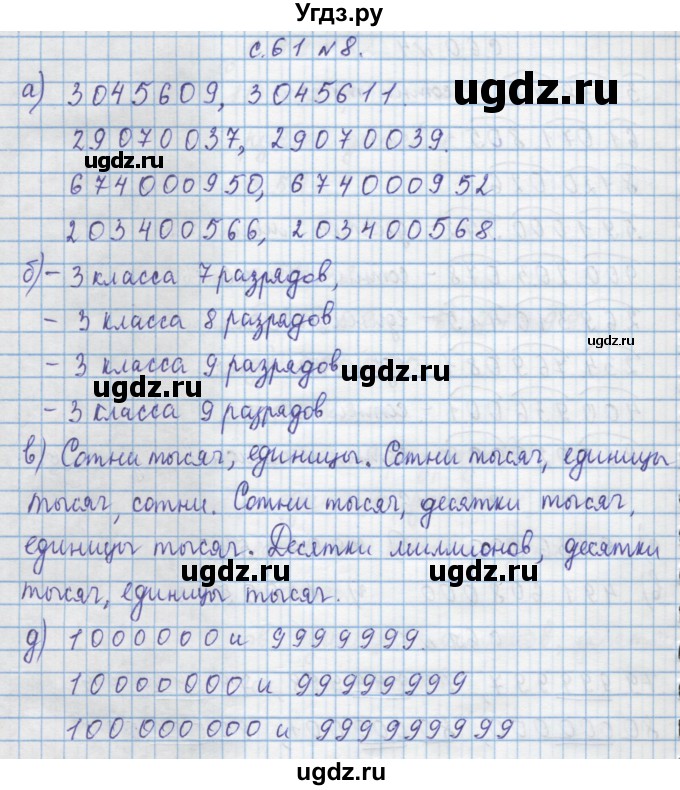 Угдз.ру
с.61 №8.
а) 3045609, 3045611.
ugdz.ru
29070037, 29070039.
ugdz.ru
674000950, 674000952
203400566, 203400568.
ugdz.ru
б) - 3 класса 7 разрядов,
- 3 класса 8 разрядов
ugdz.ru
- 3 класса 9 разрядов
ugdz.ru
ugdz.ru
- 3 класса 9 разрядов
в) Сотни тысяч, единицы. Сотни тысяч, единицы
тысяч, сотни. Сотни тысяч, десятки тысяч,
ugdz.ru
единицы тысяч. Десятки миллионов, десятки
ugdz.ru
ugdz.ru
тысяч, единицы тысяч.
д) 1000000 и 9999999.
ugdz.ru
10000000 и 99999999
ugdz.ru
100 000 000 и 999 999 999
ugdz.ru
ugdz.ru